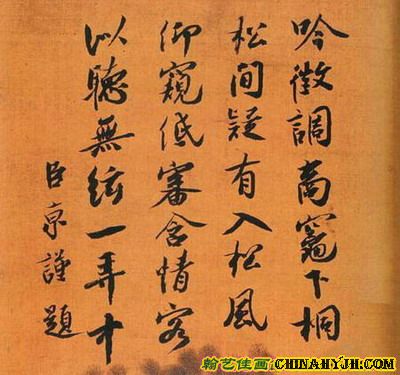 吟徵調商竈下桐
松間疑有入松風
仰窺低審含情客
似聽無絃一弄中
臣京謹題
翰艺佳画 CHINAHYJH.COM